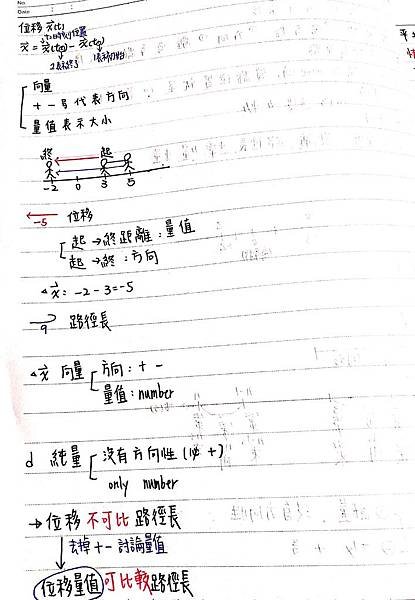 No.
Date
位移 x(t)
t的時刻位置
x = x(t2) - x(t1)
2表示終了 1表示初始
向量
+ - 号代表方向.
量值表示大小
終 起
-2 0 3 5
-5 位移
起→終距離:量值
起→終:方向
⊿x: -2-3=-5
9 路徑長
⊿x 向量 方向:+ -
量值:number
d 純量 沒有方向性 (
only number
→位移 不可比 路徑長
去掉 + - 討論量值
位移量值 可比較 路徑長